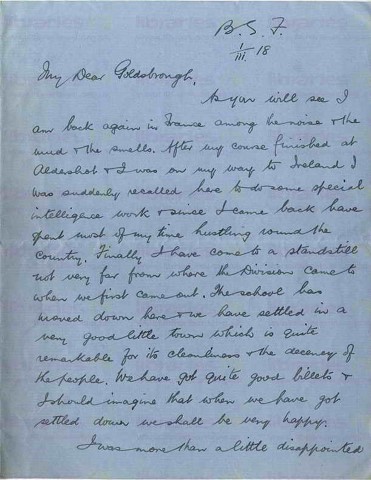 B. E. F.
1/III. 18
My Dear Goldsbrough,
As you will see I
am back again in France among the noise & the
mud & the smells. After my course finished at
Aldershot & I was on my way to Ireland I
was suddenly recalled here to do some special
intelligence work & since I came back have
spent most of my time hustling round the
country. Finally I have come to a standstill
not very far from where the Division came to
when we first came out. The school has
moved down here & we have settled in a
very good little town which is quite
remarkable for its cleanliness & the decency of
the people. We have got quite good billets &
I should imagine that when we have got
settled down we shall be very happy.
I was more than a little disappointed